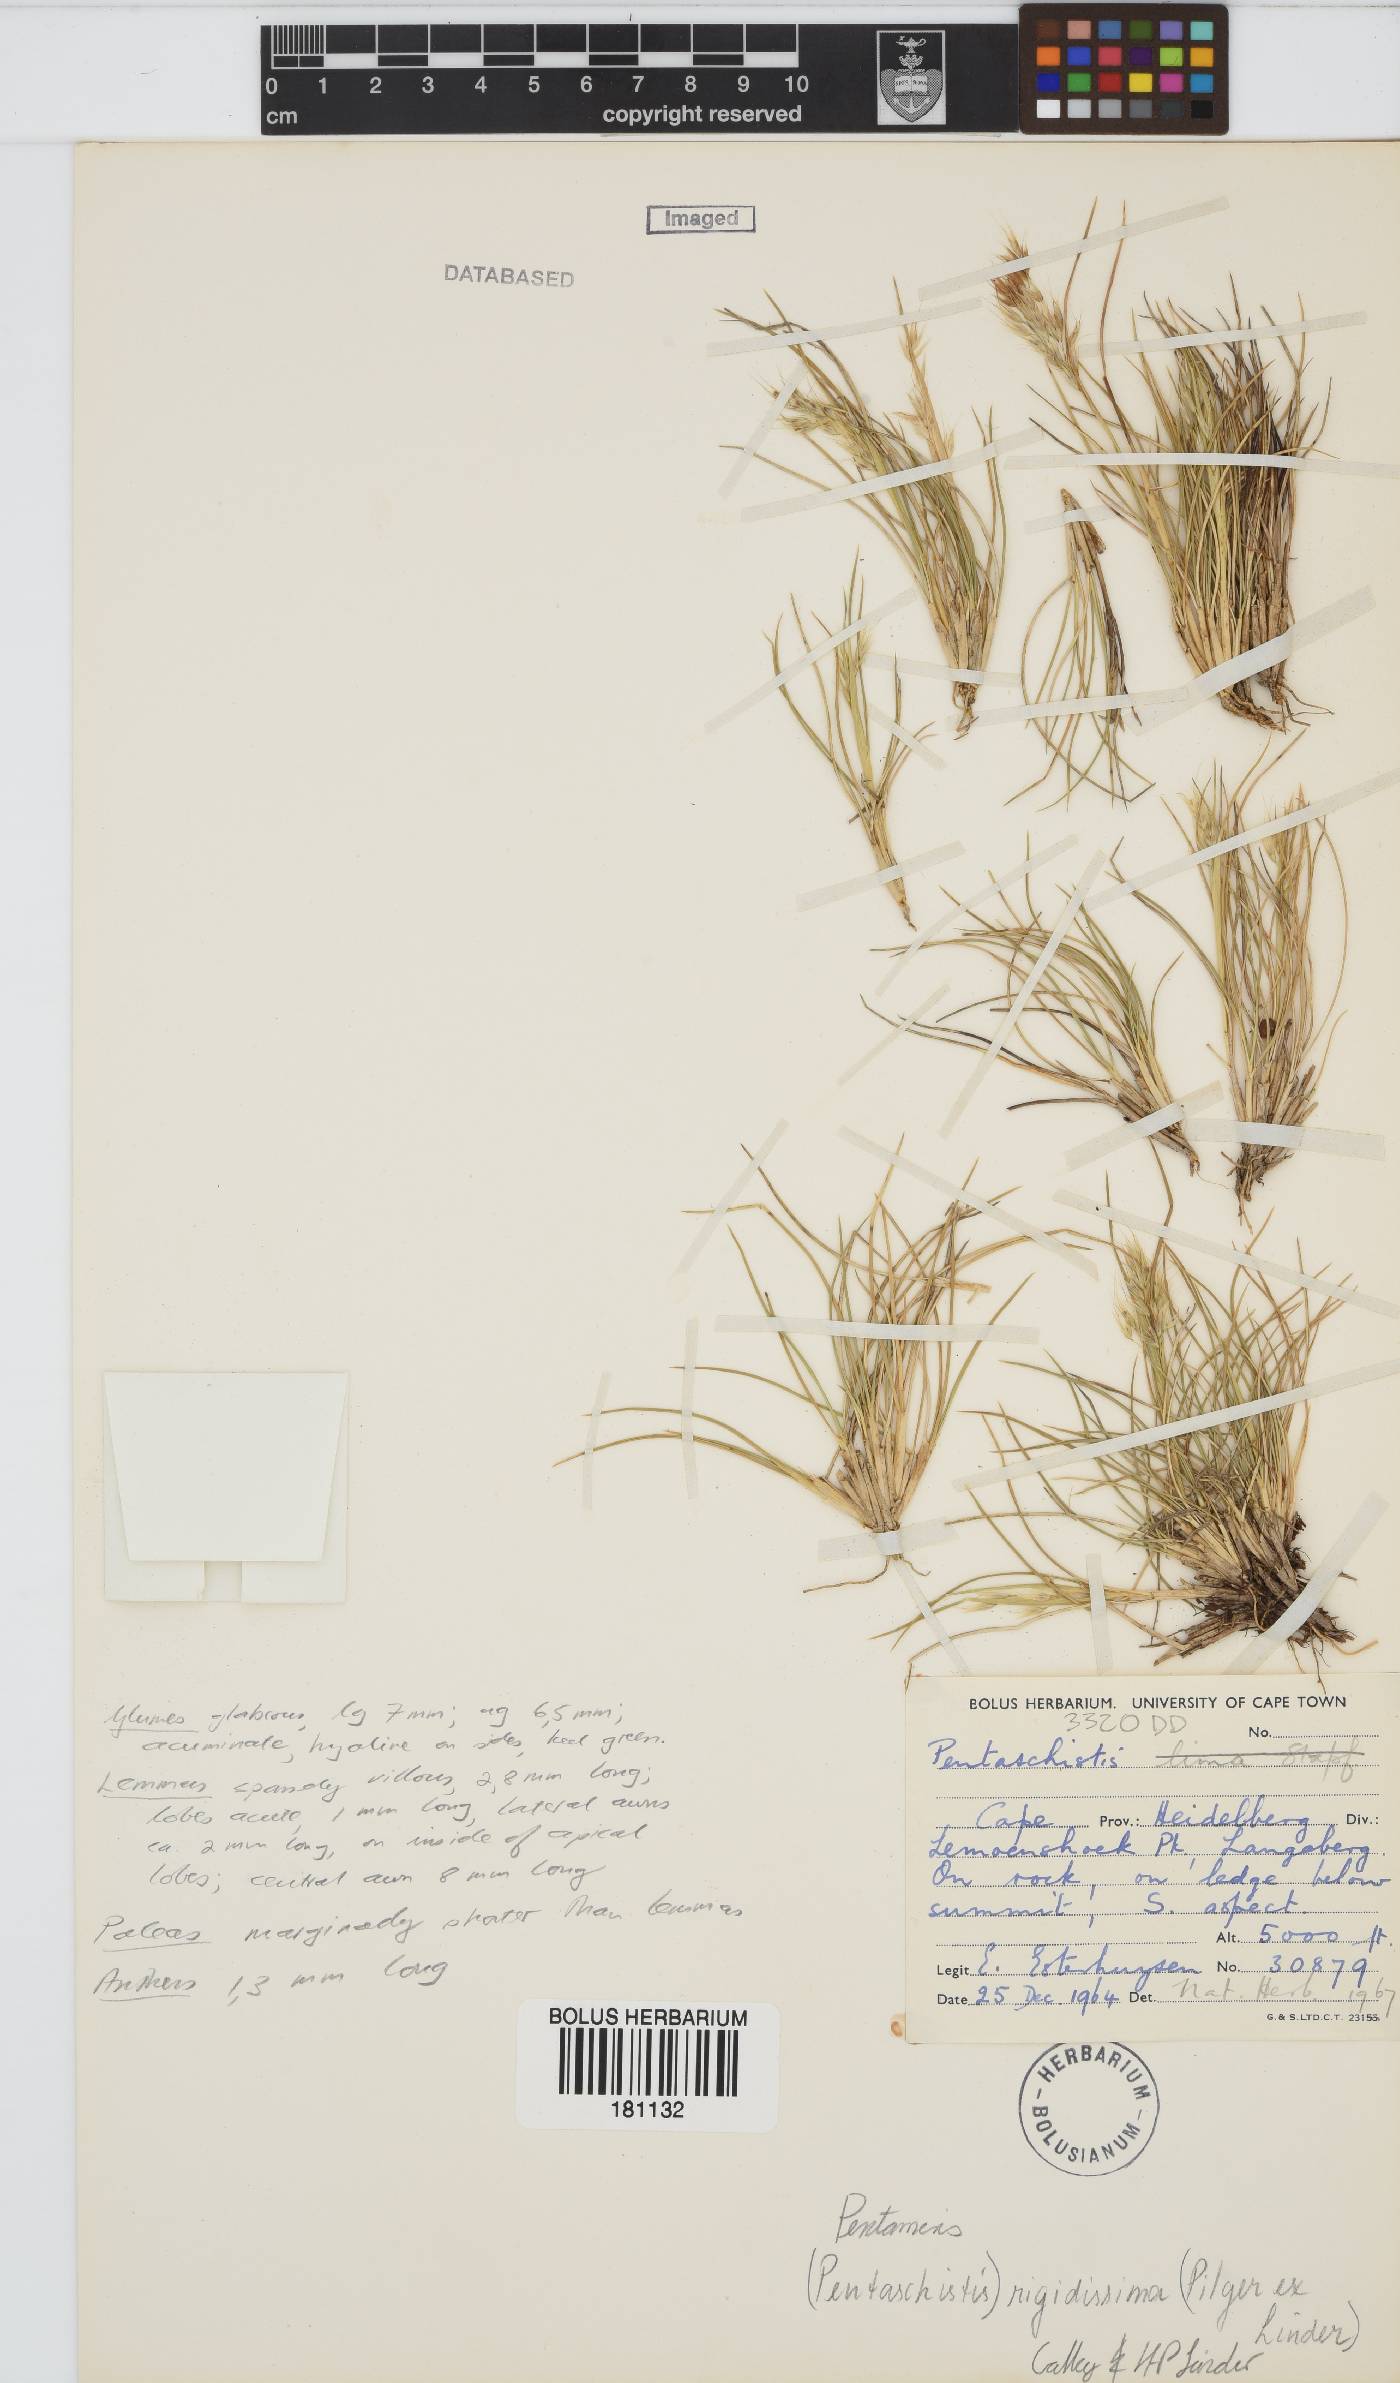 0 1 2 3 4 5 6 7 8 9 10
cm
copyright reserved
Imaged
DATABASED
Glumes glabrous, lg 7 mm; ug 6,5 mm;
acuminate, hyaline on sides, keel green.
Lemmas sparsely villous, 2,8 mm long;
lobes acute, 1 mm long, lateral awns
ca. 2 mm long, on inside of apical
lobes; central awn 8 mm long
Paleas marginally shorter than lemmas
Anthers 1,3 mm long
BOLUS HERBARIUM. UNIVERSITY OF CAPE TOWN
3320 DD No.
Pentaschistis lima Stapf
Cape Prov.: Heidelberg Div.:
Lemoenshoek Pk, Langeberg.
On rock, on ledge below
summit, S. aspect.
Alt. 5000 ft.
Legit E. Esterhuysen No. 30879
Date 25 Dec. 1964 Det. Nat. Herb. 1967
G. & S. LTD. C.T. 23155
BOLUS HERBARIUM
181132
HERBARIUM
BOLUSIANUM
Pentameris
(Pentaschistis) rigidissima (Pilger ex
Linder)
Galley & HP Linder